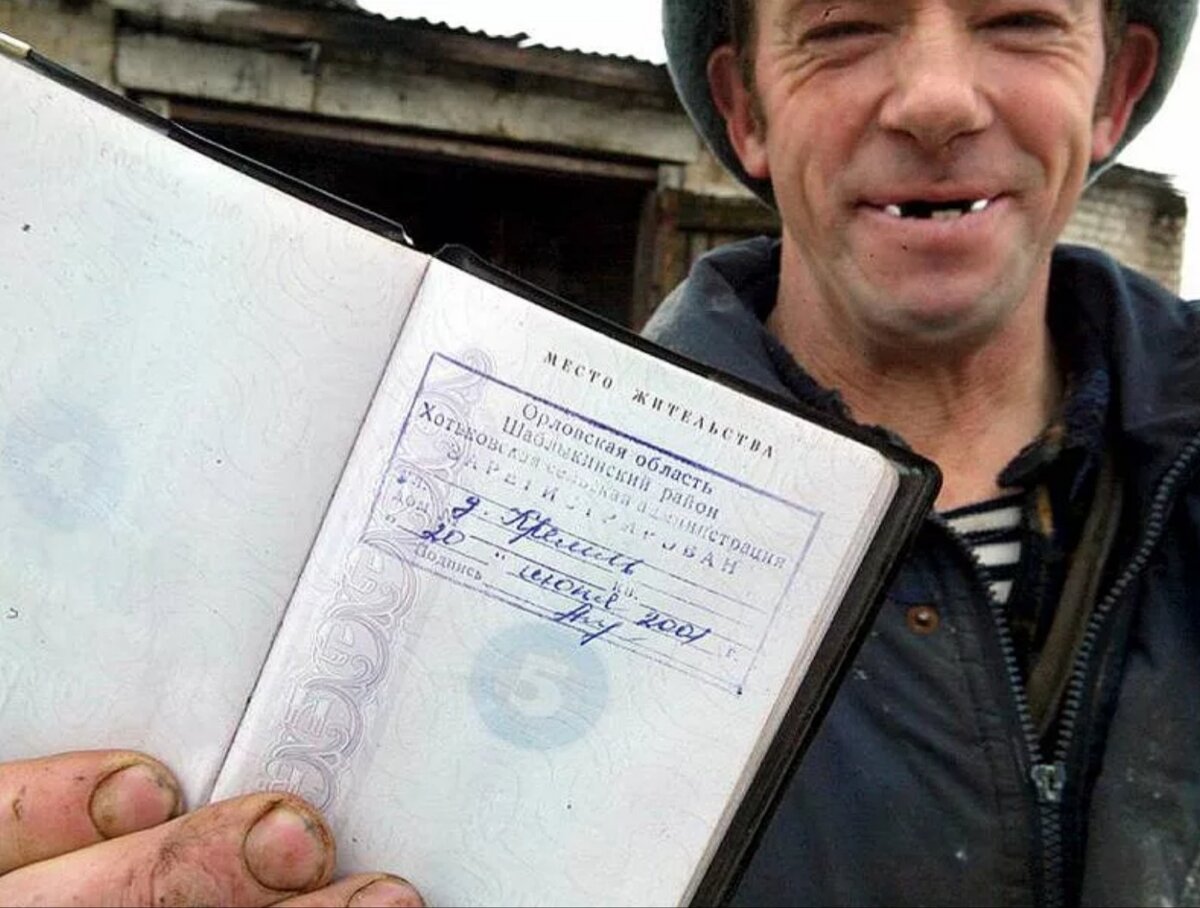 МЕСТО ЖИТЕЛЬСТВА
Орловская область
Шаблыкинский район
Хотьковская сельская администрация
ЗАРЕГИСТРИРОВАН
д. Кремль
дом кв.
"20" июня 2001 г.
Подпись
5